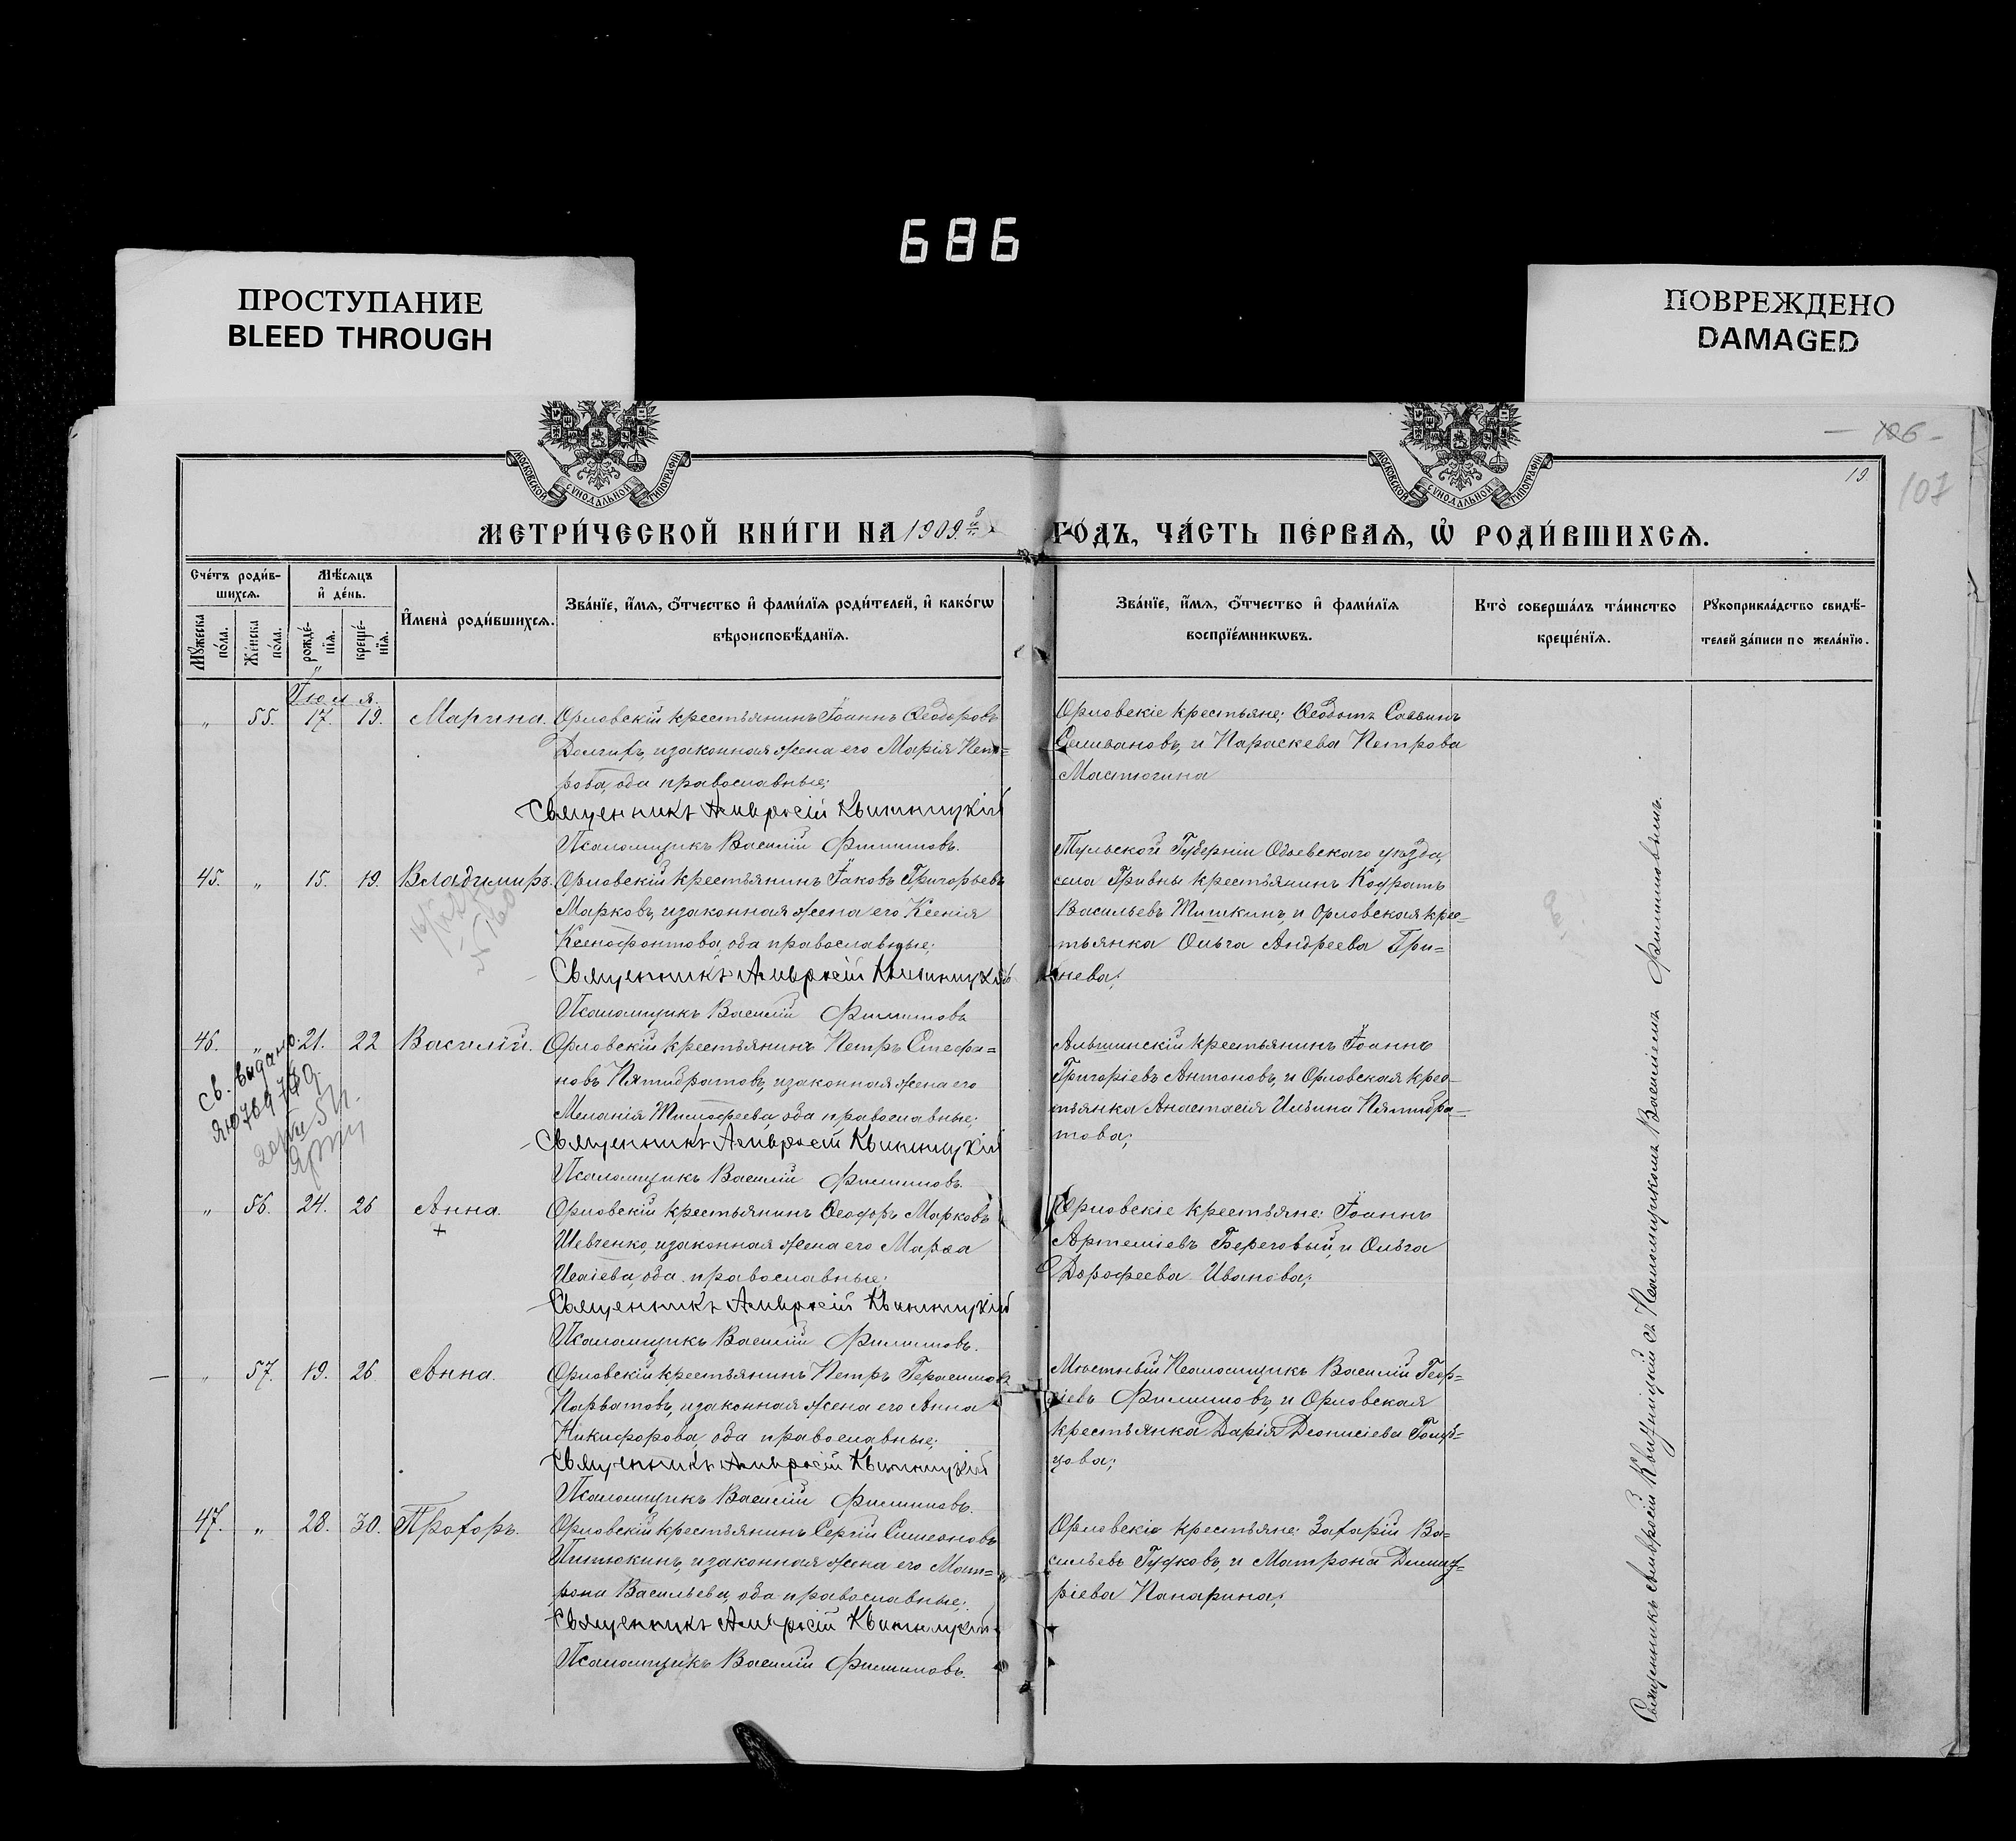 686
ПРОСТУПАНИЕ
BLEED THROUGH
ПОВРЕЖДЕНО
DAMAGED
МОСКОВСКОЙ СѴНОДАЛЬНОЙ ТИПОГРАФІИ
МОСКОВСКОЙ СѴНОДАЛЬНОЙ ТИПОГРАФІИ
- 106 -
107
19
МЕТРИ́ЧЕСКОЙ КНИ́ГИ НА 1909й
ГО́ДЪ, ЧА́СТЬ ПЕ́РВАѦ, Ѡ҆ РОДИ́ВШИХСѦ.
Сче́тъ роди́в-
шихсѧ.
Мѣ́сѧцъ
и҆ де́нь.
Мꙋ́жеска по́ла.
Же́нска по́ла.
рожде́-
нїѧ.
креще́-
нїѧ.
И҆мена̀ роди́вшихсѧ.
Зва́нїе, и҆́мѧ, ѻ҆́тчество и҆ фами́лїѧ роди́телей, и҆ како́гѡ
вѣроисповѣ́данїѧ.
Зва́нїе, и҆́мѧ, ѻ҆́тчество и҆ фами́лїѧ
воспрїе́мникѡвъ.
Кто̀ соверша́лъ та́инство
креще́нїѧ.
Рꙋкоприкла́дство свидѣ́-
телей за́писи по жела́нїю.
Іюля.
„ 55. 17. 19. Марина. Орловскій крестьянинъ Іоаннъ Ѳеодоровъ
Долгихъ, и законная жена его Марія Пет=
рова, оба православные;
Священникъ Амвросій Квитницкій
Псаломщикъ Василій Филиповъ.
Орловскіе крестьяне: Ѳеодотъ Саввинъ
Селивановъ, и Параскева Петрова
Мастюгина
45. „ 15. 19. Владимиръ. Орловскій крестьянинъ Іаковъ Григорьевъ
Марковъ, и законная жена его Ксенія
Ксенофонтова, оба православные;
Священникъ Амвросій Квитницкій
Псаломщикъ Василій Филиповъ
Тульской Губерніи Одоевскаго уѣзда
села Гривны крестьянинъ Кодратъ
Васильевъ Тишкинъ, и Орловская крес-
тьянка Ольга Андреева Гри=
нева;
46. „ 21. 22 Василій. Орловскій крестьянинъ Петръ Стефа=
новъ Пятибратовъ, и законная жена его
Меланія Тимофеева, оба православные;
Священникъ Амвросій Квитницкій
Псаломщикъ Василій Филиповъ.
Св. выдано.
Григоріевъ Антоновъ, и Орловская крес-
тьянка Анастасія Ильина Пятибра=
това;
„ 56. 24. 26 Анна. Орловскій крестьянинъ Ѳеодоръ Марковъ
Шевченко, и законная жена его Марѳа
Исаіева, оба православные;
Священникъ Амвросій Квитницкій
Псаломщикъ Василій Филиповъ.
Орловскіе крестьяне: Іоаннъ
Артеміевъ Береговый, и Ольга
Дорофеева Иванова;
„ 57. 19. 26. Анна. Орловскій крестьянинъ Петръ Герасимовъ
Нарватовъ, и законная жена его Анна
Никифорова, оба православные;
Священникъ Амвросій Квитницкій
Псаломщикъ Василій Филиповъ.
Мѣстный Псаломщикъ Василій Геор=
гіевъ Филиповъ, и Орловская
крестьянка Дарія Діонисіева
47. „ 28. 30. Прохоръ. Орловскій крестьянинъ Сергій Симеоновъ
Питюкинъ, и законная жена его Мат=
рона Васильева, оба православные;
Священникъ Амвросій Квитницкій
Псаломщикъ Василій Филиповъ.
Орловскіе крестьяне: Захарій Ва=
сильевъ Гудковъ, и Матрона Димит=
ріева Папарина;
Священникъ Амвросій Квитницкій съ Псаломщикомъ Василіемъ Филиповымъ.